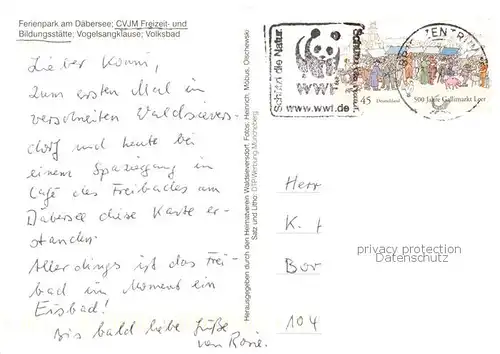 Ferienpark am Däbersee; CVJM Freizeit- und
Bildungsstätte; Vogelsangklause; Volksbad
Lieber Konni,
zum ersten Mal in
verschneiten Waldsievers-
dorf und heute bei
einem Spaziergang im
Café des Freibades am
Däbersee diese Karte er-
standen.
Allerdings ist das Frei-
bad im Moment ein
Eisbad!
Bis bald liebe Grüße
von Rosie.
Herausgegeben durch den Heimatverein Waldsieversdorf. Fotos: Heinrich, Möbus, Olschewski
Satz und Litho: DTP-Werbung-Müncheberg
Schützt die Natur.
Schützt
WWF
www.wwf.de
ZENTRUM
45 Deutschland 500 Jahre Gallimarkt Leer
Herr
K.
Bor
104
privacy protection
Datenschutz